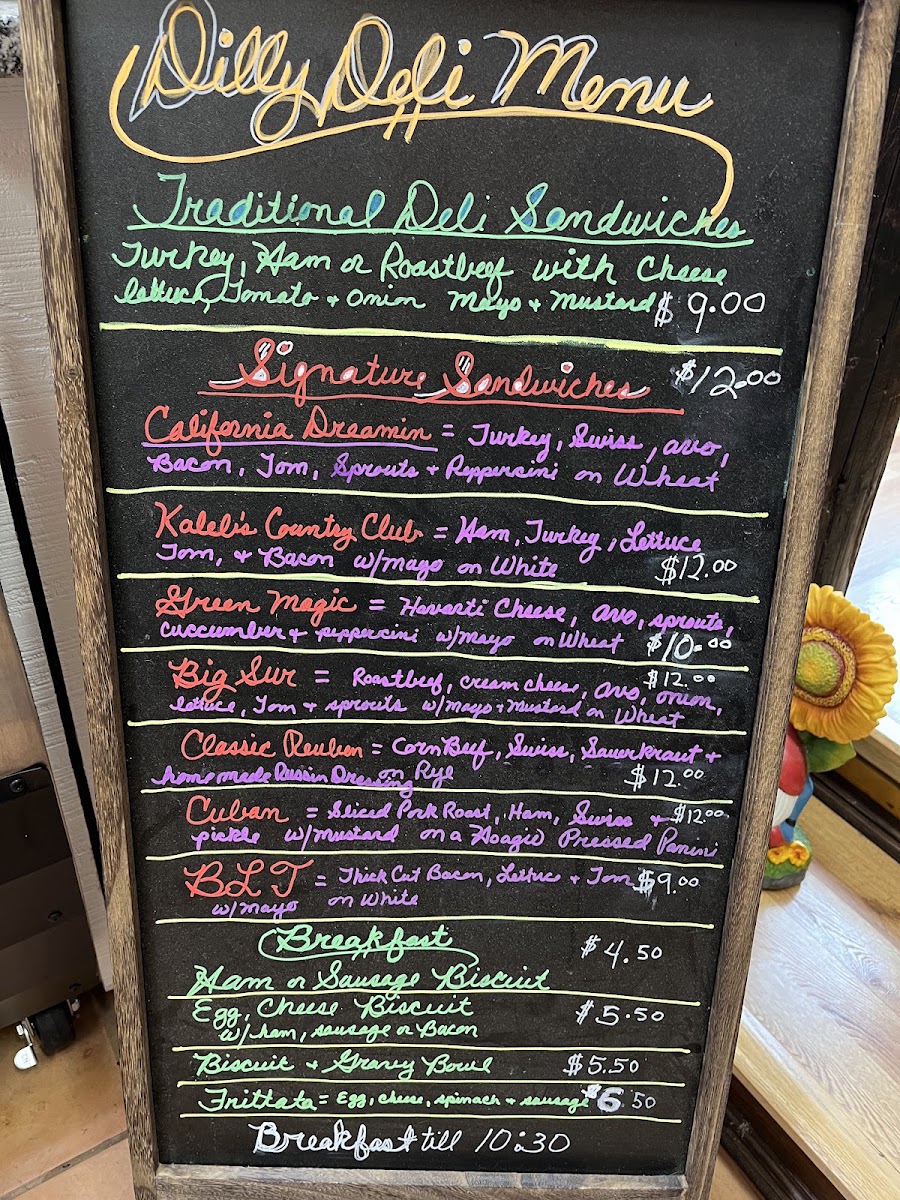 Dilly Deli Menu
Traditional Deli Sandwiches
Turkey, Ham or Roastbeef with Cheese
lettuch, Tomato + Onion Mayo + Mustard $9.00
Signature Sandwiches $12.00
California Dreamin = Turkey, Swiss, avo,
Bacon, Tom, Sprouts + Peppercini on Wheat
Kaleb's Country Club = Ham, Turkey, Lettuce
Tom, & Bacon w/mayo on White $12.00
Green Magic = Havarti Cheese, avo, sprouts,
cuccumber + peppercini w/mayo on Wheat $10.00
Big Sur = Roastbeef, cream cheese, avo, onion, $12.00
lettuce, Tom + sprouts w/mayo + Mustard on Wheat
Classic Reuben = Corn Beef, Swiss, Sauerkraut +
homemade Russin Dressing on Rye $12.00
Cuban = Sliced Pork Roast, Ham, Swiss + $12.00
pickle w/mustard on a Hoagie Pressed Panini
BLT = Thick Cut Bacon, Lettuce + Tom $9.00
w/mayo on White
Breakfast $4.50
Ham or Sausage Biscuit
Egg, Cheese Biscuit $5.50
w/ham, sausage or Bacon
Biscuit + Gravey Bowl $5.50
Frittata = Egg, cheese, spinach + sausage $6.50
Breakfast till 10:30